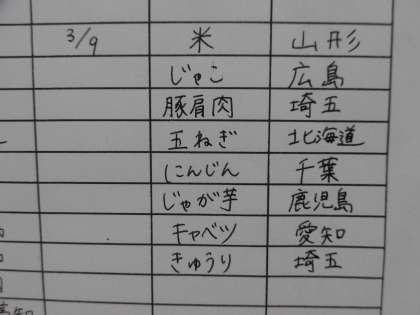 3/9 米 山形
じゃこ 広島
豚肩肉 埼玉
玉ねぎ 北海道
にんじん 千葉
じゃが芋 鹿児島
キャベツ 愛知
きゅうり 埼玉